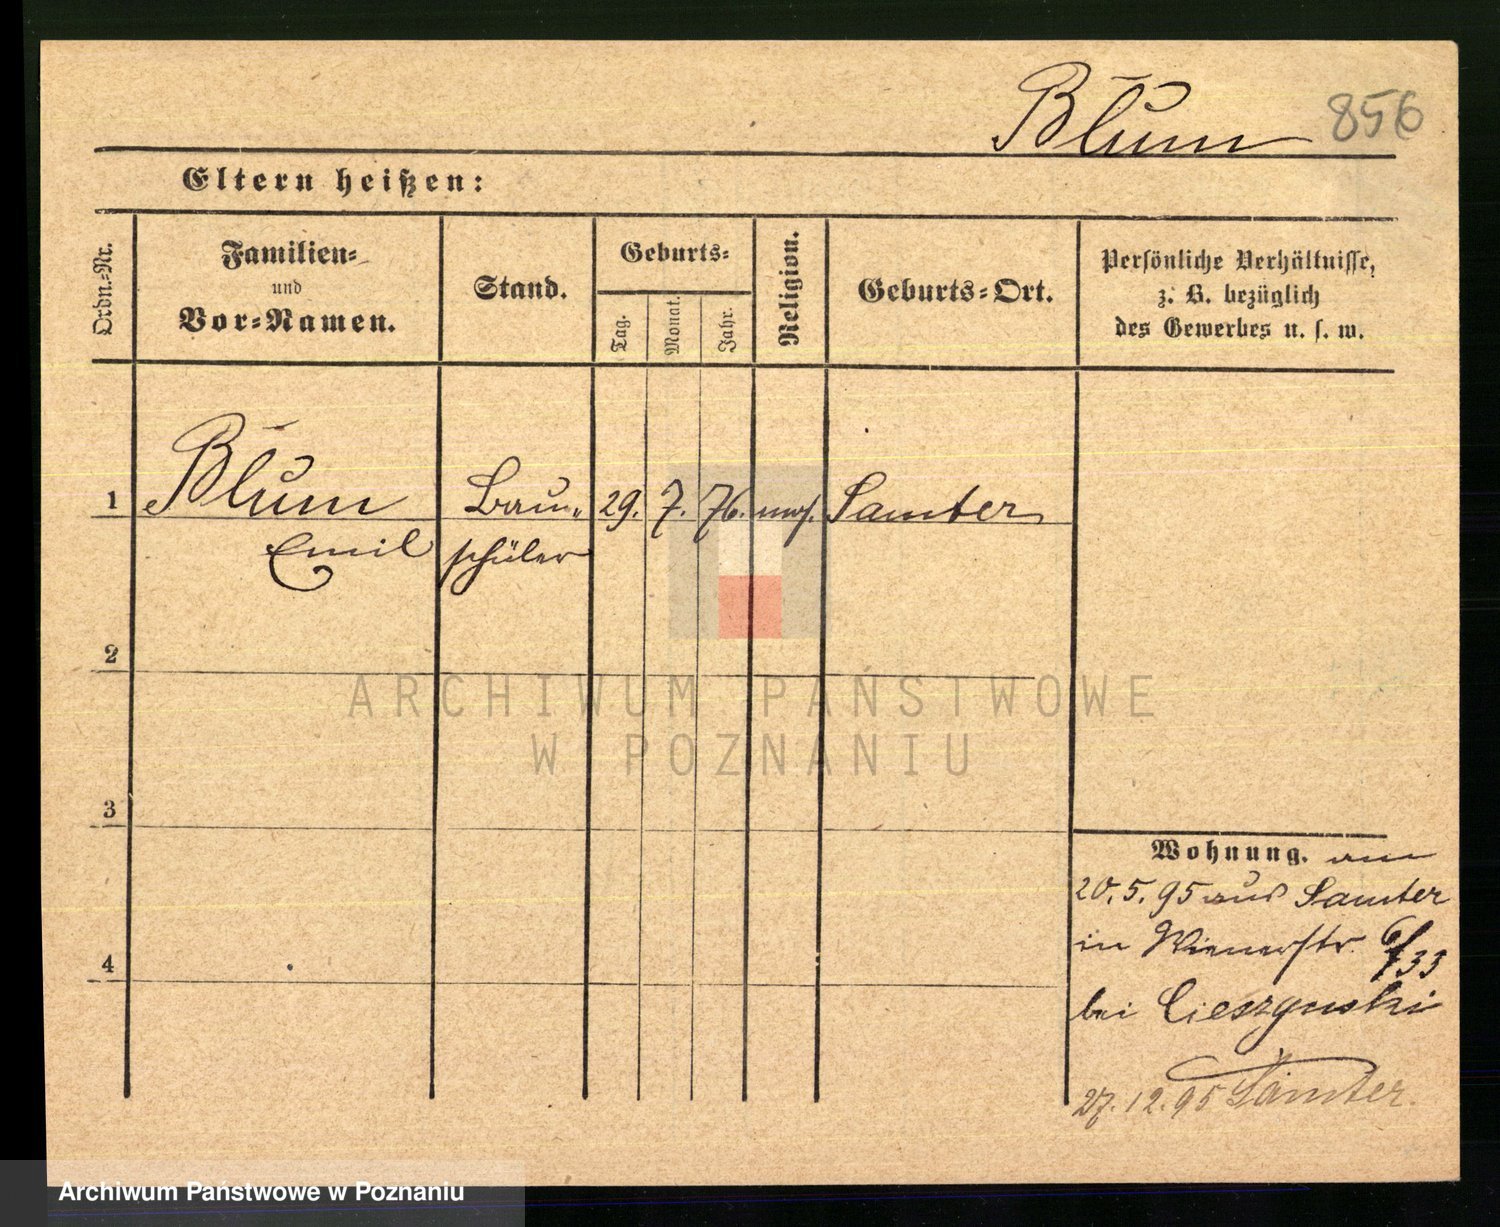 Blum 856
Eltern heißen:
Ordn.-Nr.
Familien-
und
Vor-Namen.
Stand.
Geburts-
Tag.
Monat.
Jahr.
Religion.
Geburts-Ort.
Persönliche Verhältnisse,
z. B. bezüglich
des Gewerbes u. s. w.
1 Blum Bau- 29. 7. 76. mos. Samter
Emil schüler
2
3
4
ARCHIWUM PAŃSTWOWE
W POZNANIU
Wohnung. am
20.5.95 aus Samter
in Wienerstr. /33
bei Cieszynski
27.12.95 Samter.
Archiwum Państwowe w Poznaniu